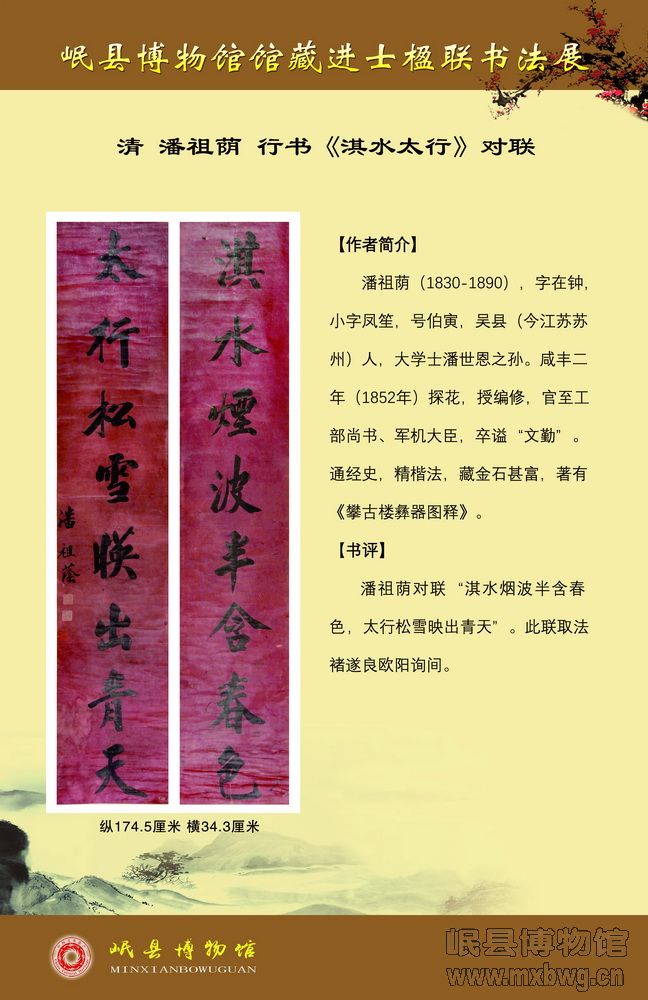 岷县博物馆馆藏进士楹联书法展
清 潘祖荫 行书《淇水太行》对联
淇水煙波半含春色
太行松雪暎出青天
潘祖蔭
纵174.5厘米 横34.3厘米
【作者简介】
潘祖荫（1830-1890），字在钟，
小字凤笙，号伯寅，吴县（今江苏苏
州）人，大学士潘世恩之孙。咸丰二
年（1852年）探花，授编修，官至工
部尚书、军机大臣，卒谥“文勤”。
通经史，精楷法，藏金石甚富，著有
《攀古楼彝器图释》。
【书评】
潘祖荫对联“淇水烟波半含春
色，太行松雪映出青天”。此联取法
褚遂良欧阳询间。
岷县博物馆
MINXIANBOWUGUAN
岷县博物馆
www.mxbwg.cn